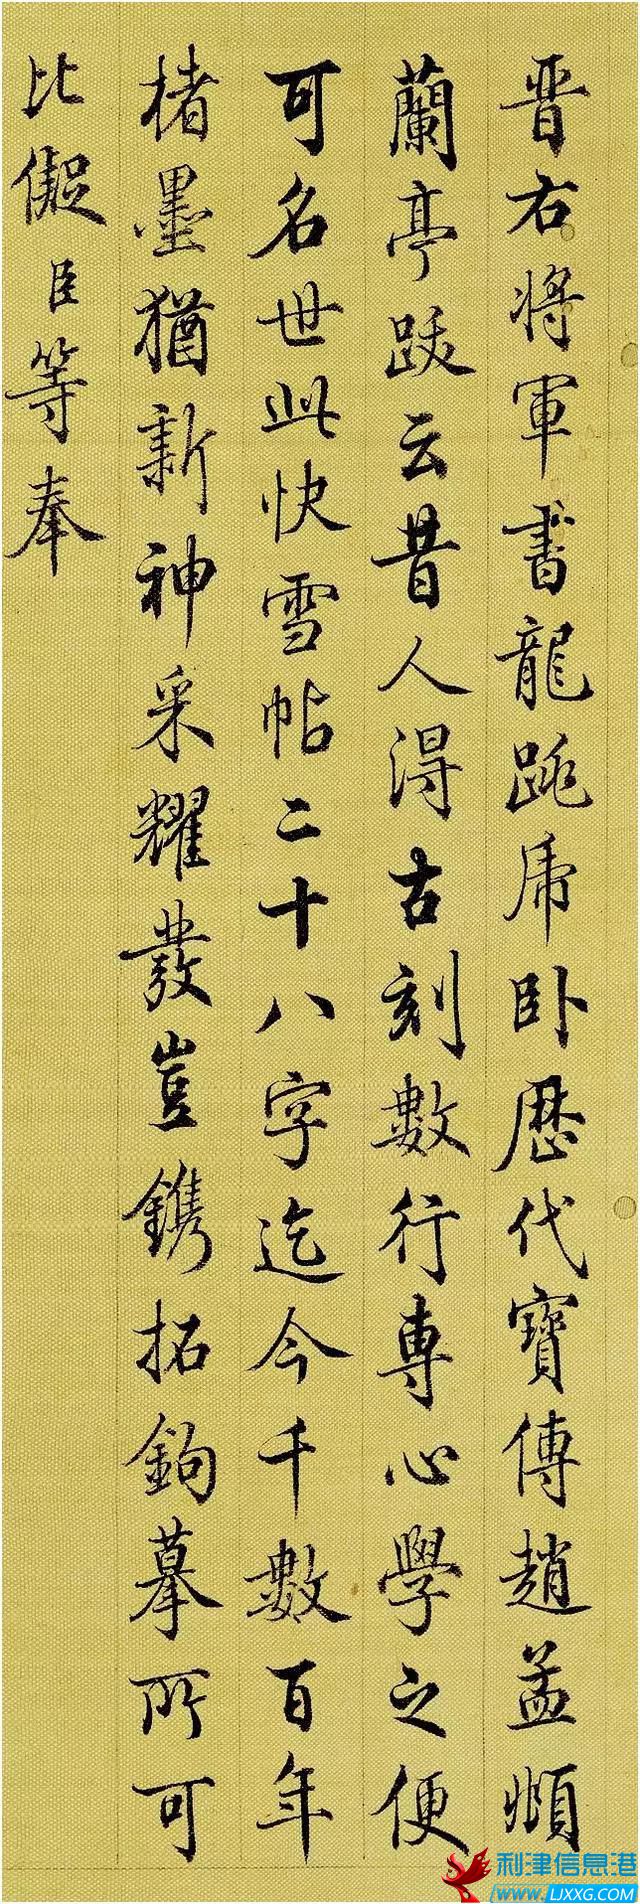 晋右将軍書龍跳虎卧歷代寶傳趙孟頫
蘭亭跋云昔人得古刻數行專心學之便
可名世此快雪帖二十八字迄今千數百年
楮墨猶新神采耀發豈鐫拓鉤摹所可
比儗臣等奉
利津信息港
www.LJXXG.COM